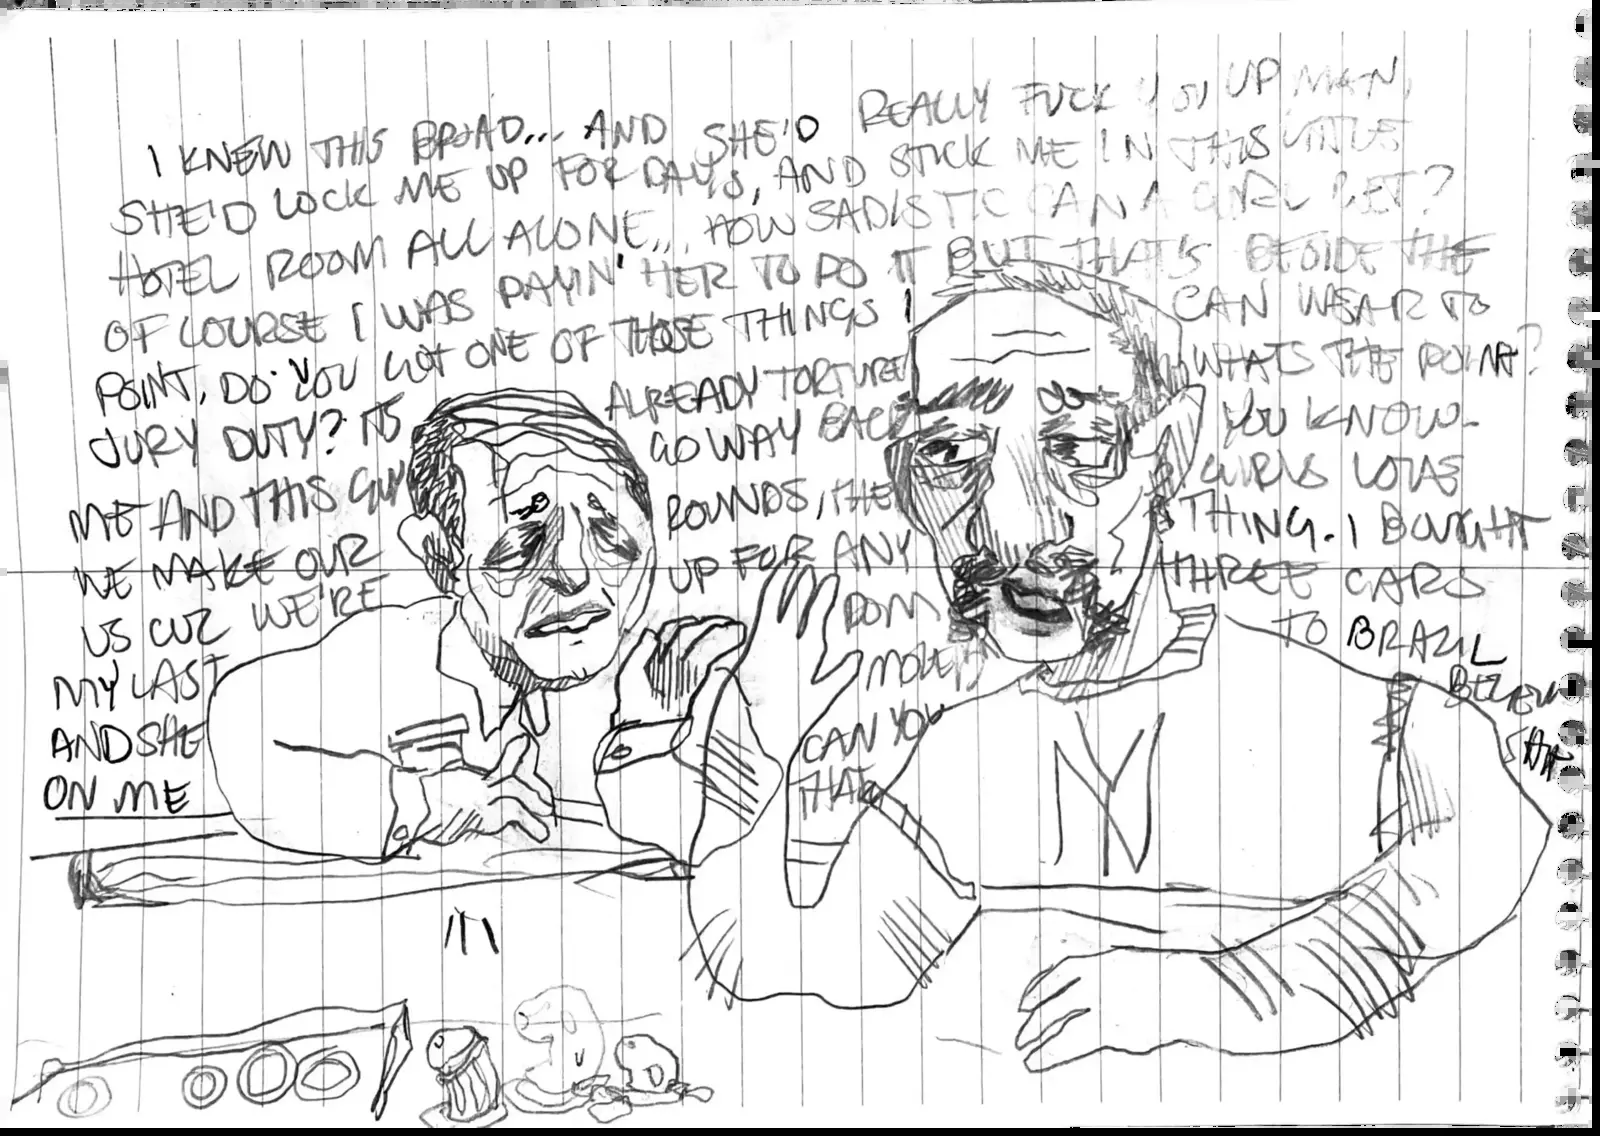 I KNEW THIS BROAD... AND SHE'D REALLY FUCK YOU UP MAN,
SHE'D LOCK ME UP FOR DAYS, AND STICK ME IN THIS LITTLE
HOTEL ROOM ALL ALONE... HOW SADISTIC CAN A GIRL GET?
OF COURSE I WAS PAYIN' HER TO DO IT BUT THAT'S BESIDE THE
POINT, DO YOU GOT ONE OF THOSE THINGS I CAN WEAR TO
JURY DUTY? ITS ALREADY TORTURE WHATS THE POINT?
ME AND THIS GUY GO WAY BACK YOU KNOW-
WE MAKE OUR ROUNDS, THE GIRLS LOVE
US CUZ WE'RE UP FOR ANY THING. I BOUGHT
MY LAST DOM THREE CARS
AND SHE MOVED TO BRAZIL
ON ME CAN YOU BELIEVE
THAT
NY